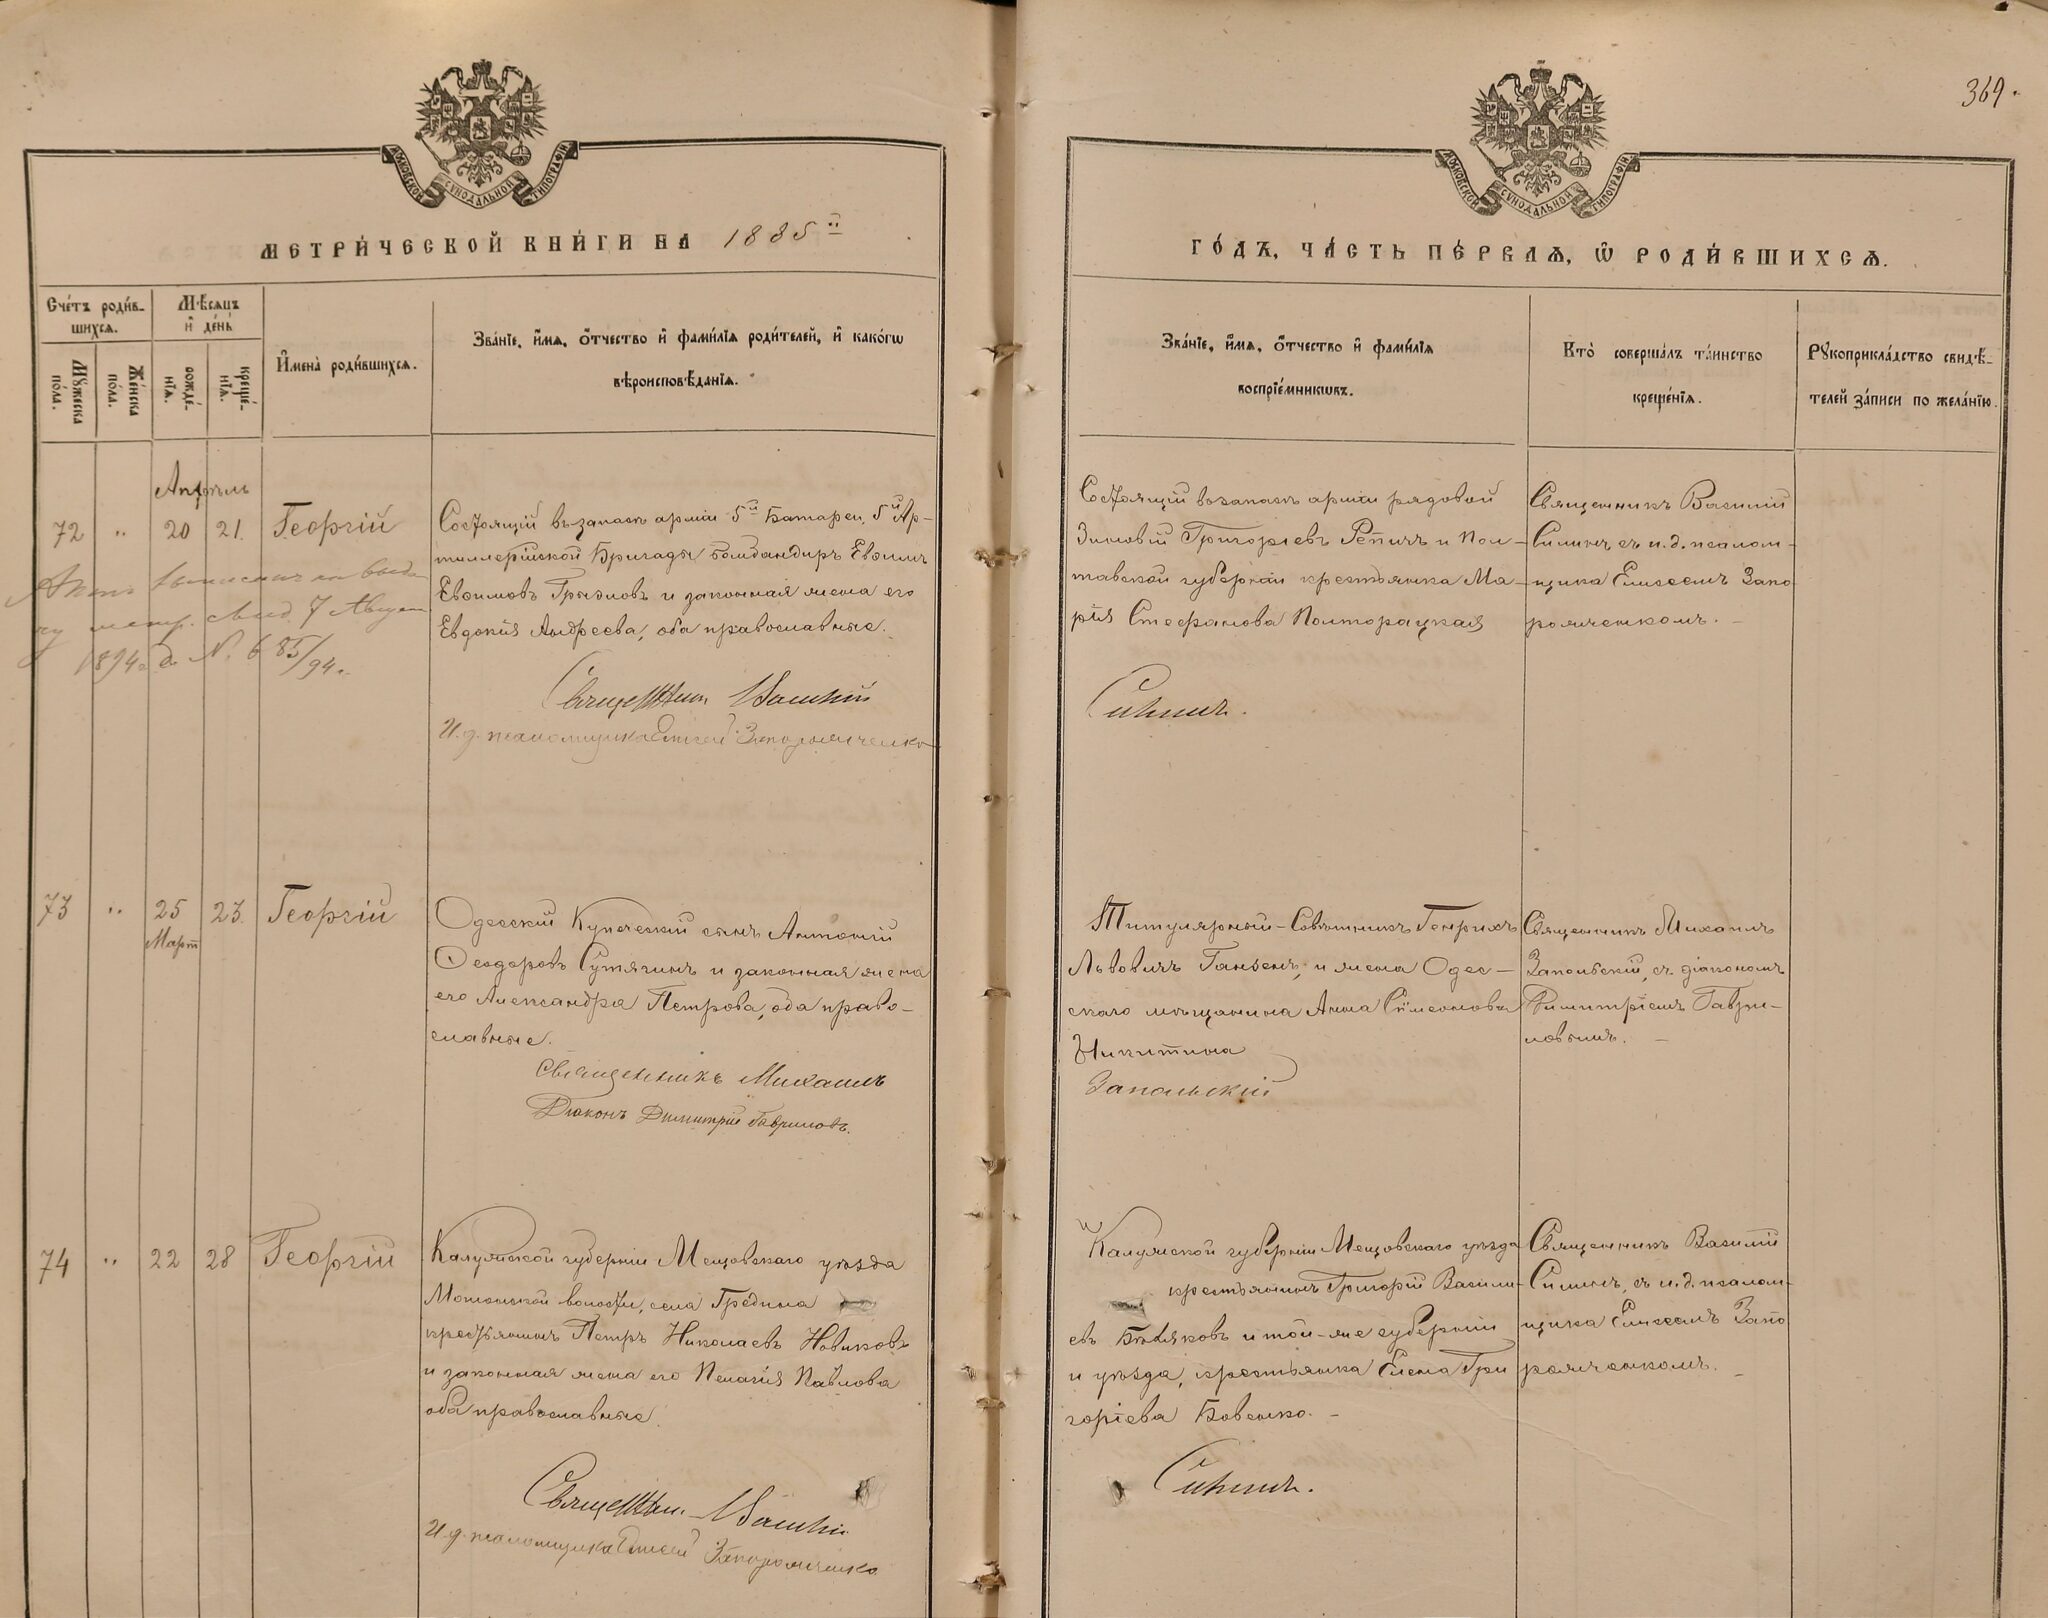 369.
МОСКОВСКОЙ СѴНОДАЛЬНОЙ ТИПОГРАФІИ
МОСКОВСКОЙ СѴНОДАЛЬНОЙ ТИПОГРАФІИ
МЕТРИ́ЧЕСКОЙ КНИ́ГИ НА 1885й
ГО́ДЪ, ЧА́СТЬ ПЕ́РВАѦ, Ѡ҆ РОДИ́ВШИХСѦ.
Сче́тъ роди́в-
шихсѧ.
Мꙋ́жеска по́ла.
Же́нска по́ла.
Мѣ́сѧцъ
и҆ де́нь
рожде́-нїѧ.
креще́-нїѧ.
И҆мена̀ роди́вшихсѧ.
Зва́нїе, и҆́мѧ, ѻ҆́тчество и҆ фами́лїѧ роди́телей, и҆ како́гѡ
вѣроисповѣ́данїѧ.
Зва́нїе, и҆́мѧ, ѻ҆́тчество и҆ фами́лїѧ
воспрїе́мникѡвъ.
Кто̀ соверша́лъ та́инство
креще́нїѧ.
Рꙋкоприкла́дство свидѣ́-
телей за́писи по жела́нїю.
Апрѣль
72 " 20 21. Георгій
Состоящій въ запасѣ арміи 5й Батареи, 5й Ар-
тиллерійской Бригады бомбандиръ Евѳимъ
Евѳимовъ Грызловъ и законная жена его
Евдокія Андреева, оба православные.
Священникъ Василій
И. д. псаломщика Елисей Запорожченко
выпис
метр. свид. 7 Август
1894 г. № 685/94.
Состоящій въ запасѣ арміи рядовой
Зиновій Григорьевъ Репичъ и Пол-
тавской губерніи крестьянка Ма-
рія Стефанова Полторацкая
Силинъ.
Священникъ Василій
Силинъ съ и. д. псалом-
щика Елисеемъ Запо
рожченкомъ.
73 " 25 23. Георгій
Март
Одесскій Купеческій сынъ Антоній
Ѳеодоровъ Сутягинъ и законная жена
его Александра Петрова, оба право-
славные.
Священникъ Михаилъ
Діаконъ Димитрій Гавриловъ.
Титулярный-Совѣтникъ Генрихъ
Львовичъ Ганзенъ, и жена Одес-
скаго мѣщанина Анна Сѵмеонова
Никитина
Запольскій
Священникъ Михаилъ
Запольскій, съ діакономъ
Димитріемъ Гаври-
ловымъ.
74 " 22 28 Георгій
Калужской губерніи Мещовскаго уѣзда
волости, села Гредина
крестьянинъ Петръ Николаевъ Новиковъ
и законная жена его Пелагія Павлова
оба православные.
Священникъ Василій
И. д. псаломщика Елисей Запорожченко
Калужской губерніи Мещовскаго уѣзда
крестьянинъ Григорій Василь-
евъ Бѣляковъ и той-же губерніи
и уѣзда, крестьянка Елена Гри
горіева Бовенко.
Силинъ.
Священникъ Василій
Силинъ, съ и. д. псалом-
щика Елисеемъ Запо
рожченкомъ.